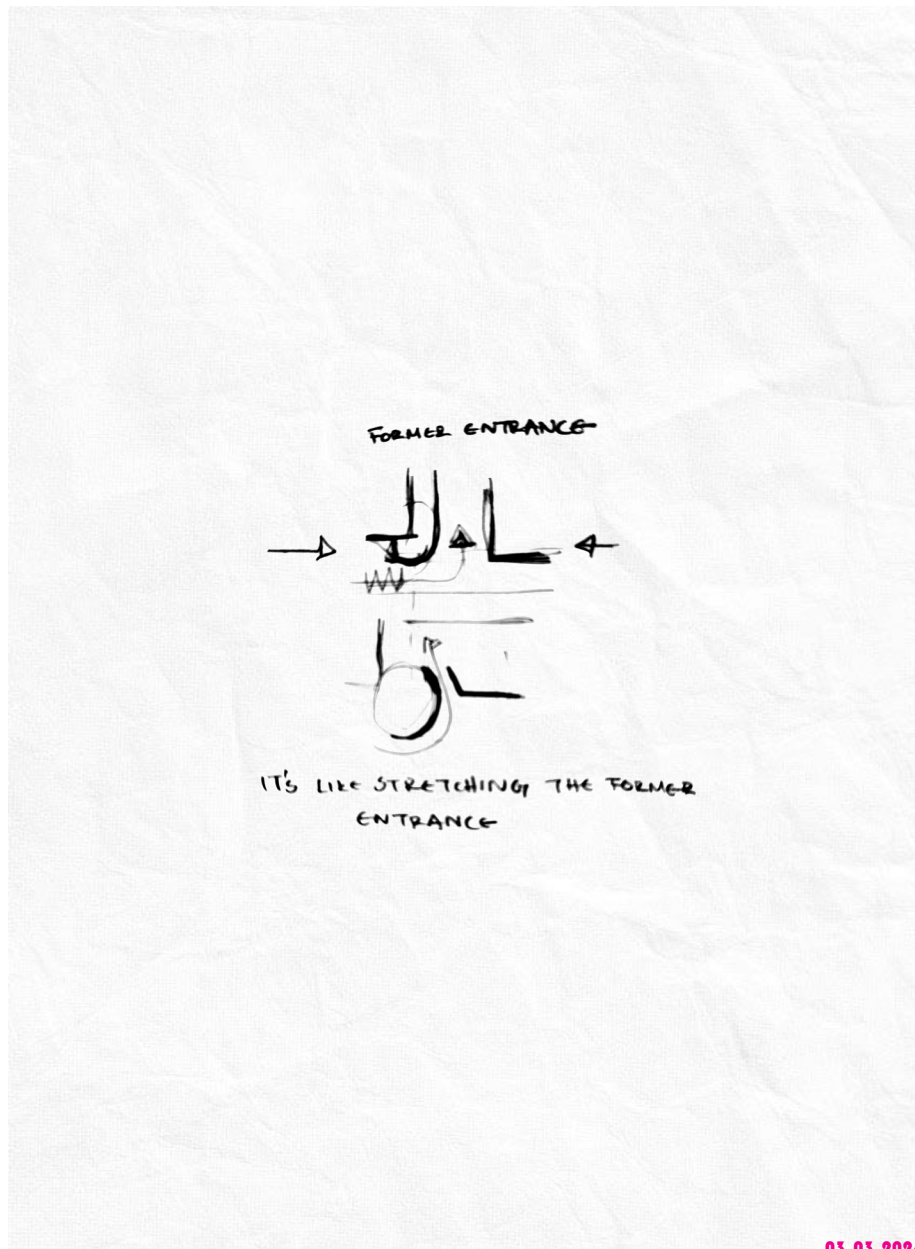 FORMER ENTRANCE
IT'S LIKE STRETCHING THE FORMER
ENTRANCE